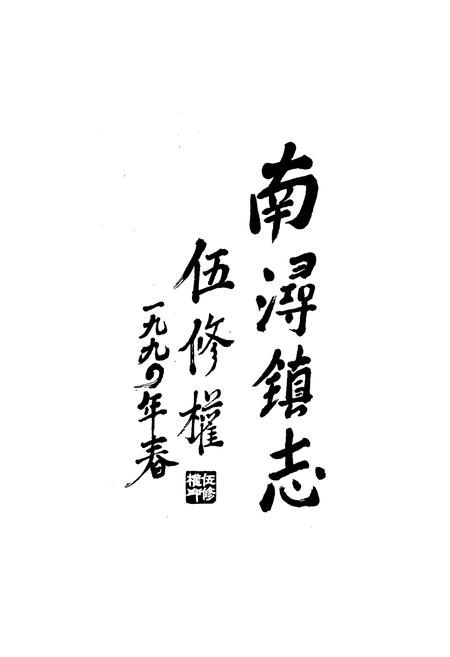 南潯鎮志
伍修權
一九九〇年春
伍修權印